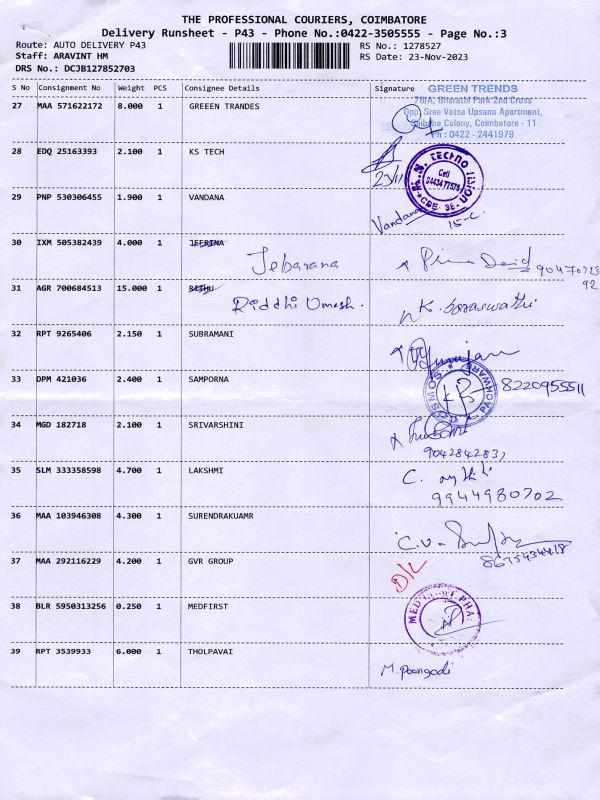 THE PROFESSIONAL COURIERS, COIMBATORE
Delivery Runsheet - P43 - Phone No.:0422-3505555 - Page No.:3
Route: AUTO DELIVERY P43
RS No.: 1278527
Staff: ARAVINT HM
RS Date: 23-Nov-2023
DRS No.: DCJB127852703
S No Consignment No Weight PCS Consignee Details Signature
GREEN TRENDS
78/A, Bharathi Park 2nd Cross
Opp. Sree Vatsa Upsana Apartment,
Saibaba Colony, Coimbatore - 11
Ph : 0422 - 2441979
27 MAA 571622172 8.000 1 GREEEN TRANDES
28 EDQ 25163393 2.100 1 KS TECHNO
23/11
29 PNP 530306455 1.900 1 VANDANA
Vandana
30 IXM 505382439 4.000 1 JEFRINA
Jebarana
31 AGR 700684513 15.000 1
Riddhi Umesh.
K. Saraswathi
32 RPT 9265406 2.150 1 SUBRAMANI
33 DPM 421036 2.400 1 SAMPORNA
PACKWARE
8220955511
34 MGD 182718 2.100 1 SRIVARSHINI
35 SLM 333358598 4.700 1 LAKSHMI
9944980702
36 MAA 103946308 4.300 1 SURENDRAKUAMR
8675434418
37 MAA 292116229 4.200 1 GVR GROUP
D/L
38 BLR 5950313256 0.250 1 MEDFIRST
39 RPT 3539933 6.000 1 THOLPAVAI
M. Poongodi